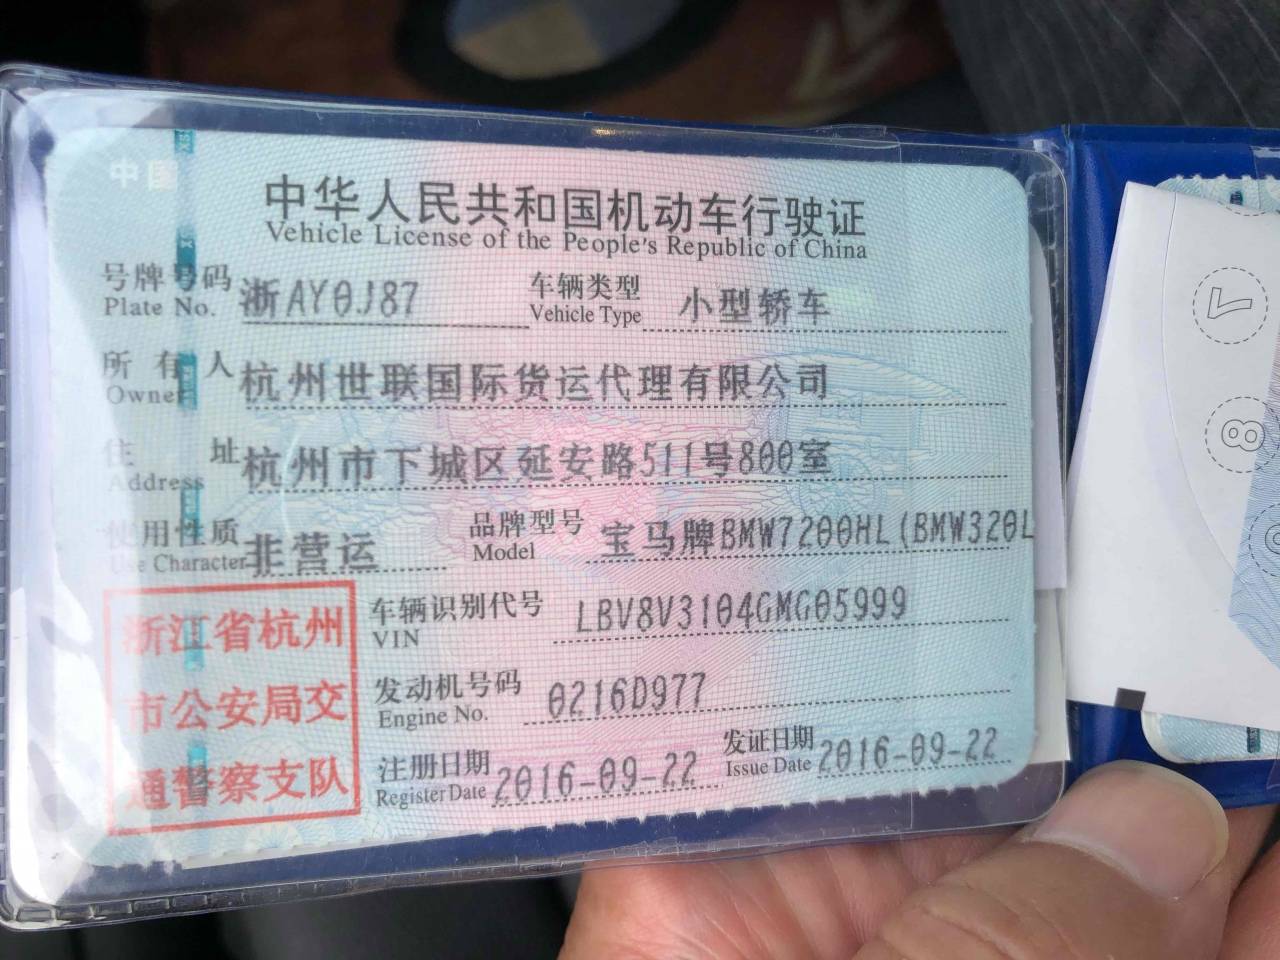 中国
中华人民共和国机动车行驶证
Vehicle License of the People's Republic of China
号牌号码 浙AY0J87 车辆类型 小型轿车
Plate No. Vehicle Type
所有人 杭州世联国际货运代理有限公司
Owner
住址 杭州市下城区延安路511号800室
Address
使用性质 非营运 品牌型号 宝马牌BMW7200HL(BMW320L
Use Character Model
浙江省杭州
市公安局交
通警察支队
车辆识别代号 LBV8V3104GMG05999
VIN
发动机号码 0216D977
Engine No.
注册日期 2016-09-22 发证日期 2016-09-22
Register Date Issue Date
7
8